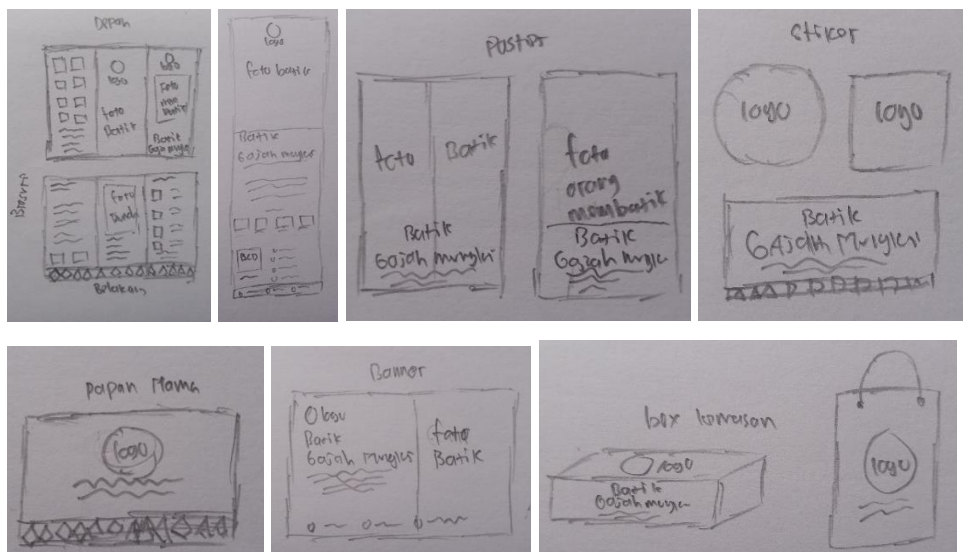 Depan
logo
foto
Batik
logo
Foto
Batik
Brosur
Foto
Belakang
logo
foto batik
Batik
Gajah mungkur
Poster
foto
Batik
Batik
Gajah mungkur
foto
orang
membatik
Batik
Gajah mungkur
Stiker
logo
logo
Batik
GAjah Mungkur
papan Nama
logo
Banner
logo
Batik
Gajah Mungkur
foto
Batik
box kemasan
logo
Batik
Gajah mungkur
logo